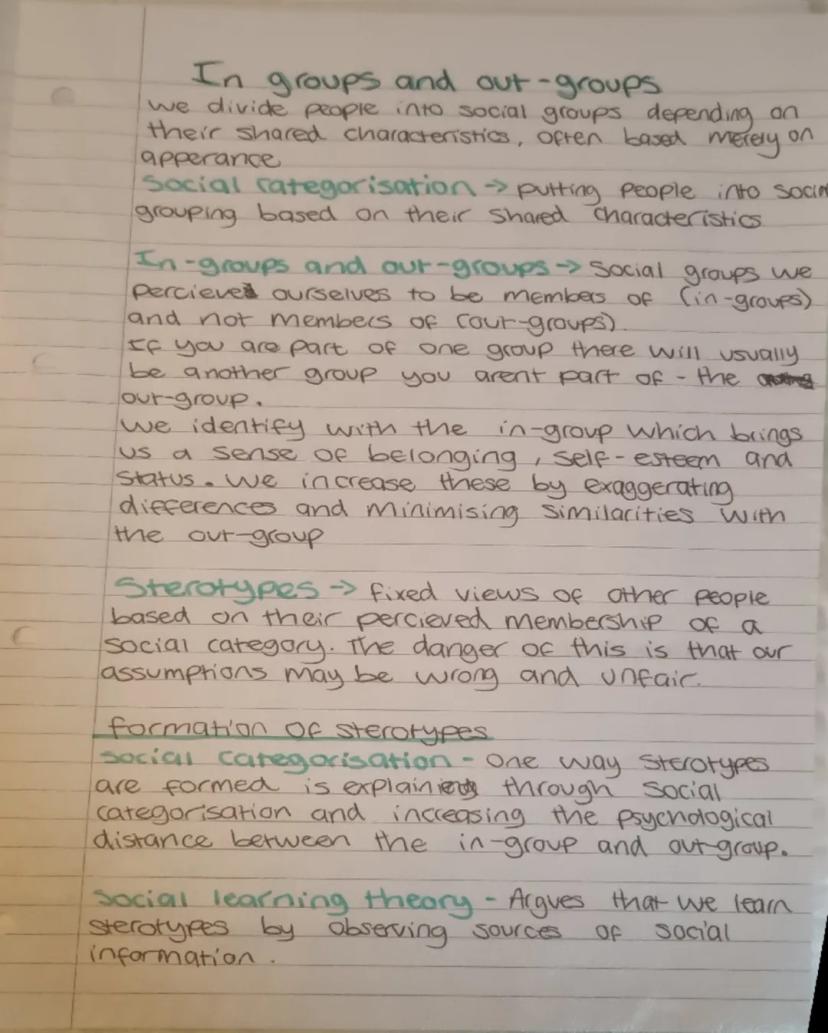 In groups and out-groups
we divide people into social groups depending on
their shared characteristics, often based merely on
apperance
Social categorisation → putting people into socia
grouping based on their shared characteristics
In-groups and out-groups → social groups we
percieve ourselves to be members of (in-groups)
and not members of (out-groups)
If you are part of one group there will usually
be another group you arent part of - the
out-group.
we identify with the in-group which brings
us a sense of belonging, self-esteem and
status. We increase these by exaggerating
differences and minimising similarities with
the out-group
Sterotypes → fixed views of other people
based on their percieved membership of a
social category. The danger of this is that our
assumptions may be wrong and unfair.
formation of sterotypes
social categorisation - one way sterotypes
are formed is explain through social
categorisation and increasing the psychological
distance between the in-group and out-group.
social learning theory - Argues that we learn
sterotypes by observing sources of social
information.